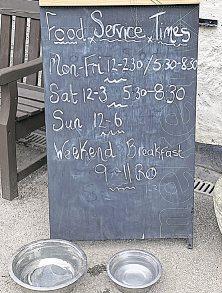 Food Service Times
Mon-Fri 12-2.30/5.30-8.30
Sat 12-3 5.30-8.30
Sun 12-6
Weekend Breakfast
9-11.30